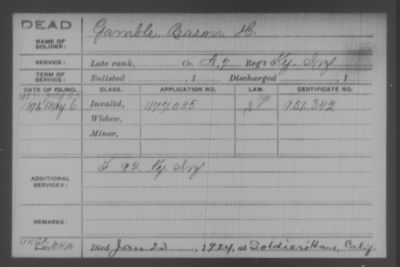 DEAD
NAME OF SOLDIER: Gamble, Bason H.
SERVICE: Late rank, Co. A, 7 Reg't Ky. Inf
TERM OF SERVICE: Enlisted , 1 Discharged , 1
DATE OF FILING. CLASS. APPLICATION NO. LAW. CERTIFICATE NO.
May 6 Invalid, 1177095 951.342
Widow,
Minor,
ADDITIONAL SERVICES: F 22 Ky. Inf.
REMARKS:
Died Jan 23, 1924, at Soldiers Home, Calif.